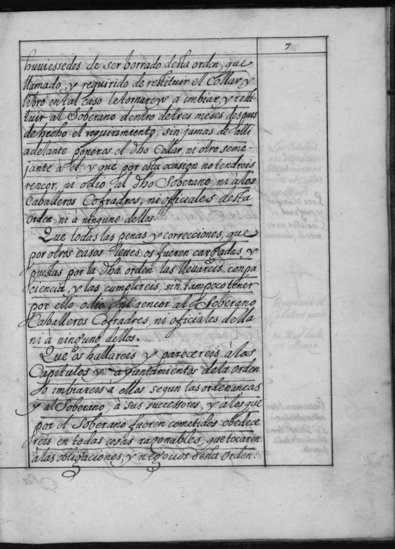 7
huuiessedes de ser borrado desta orden, que
llamado, y requirido de restituir el Collar, y
libro en tal caso le tornareys a imbiar, y resti-
tuir al Soberano dentro de tres meses despues
de hecho el requerimiento, sin jamas de alli
adelante poneros el dho Collar, ni otro seme-
jante a el: y que por esta ocasion no tendreis
rencor, ni odio al dho Soberano, ni a los
Caballeros Cofradres, ni officiales desta
orden, ni a ninguno dellos.
Que todas las penas y correcciones, que
por otros casos leues, os fueren cargadas y
puestas por la dha orden, las lleuareis, con pa
ciencia, y las cumplireis, sin tampoco tener
por ello odio, ni rencor al Soberano
Caballeros Cofradres, ni oficiales della
ni à ninguno dellos.
Que os hallareis y parecereis à los
Capitulos y ayuntamientos de la orden
o imbiareis a ellos segun las ordenancas
y al Soberano, à sus successores, y à los que
por el Soberano fueren cometidos obedece
reis en todas cosas raponables, que tocaren
à las obligaciones, y negocios desta orden.